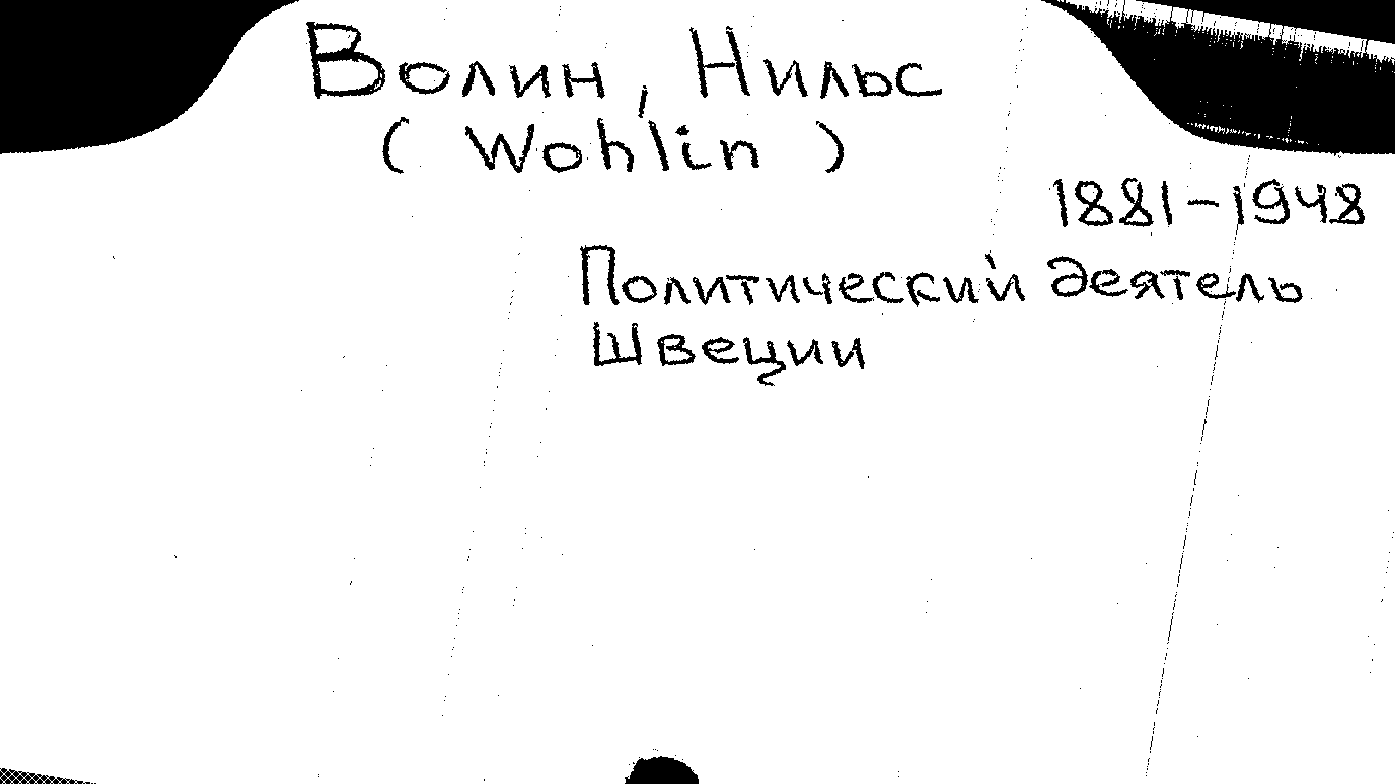 Волин, Нильс
( Wohlin )
1881-1948
Политический деятель
Швеции